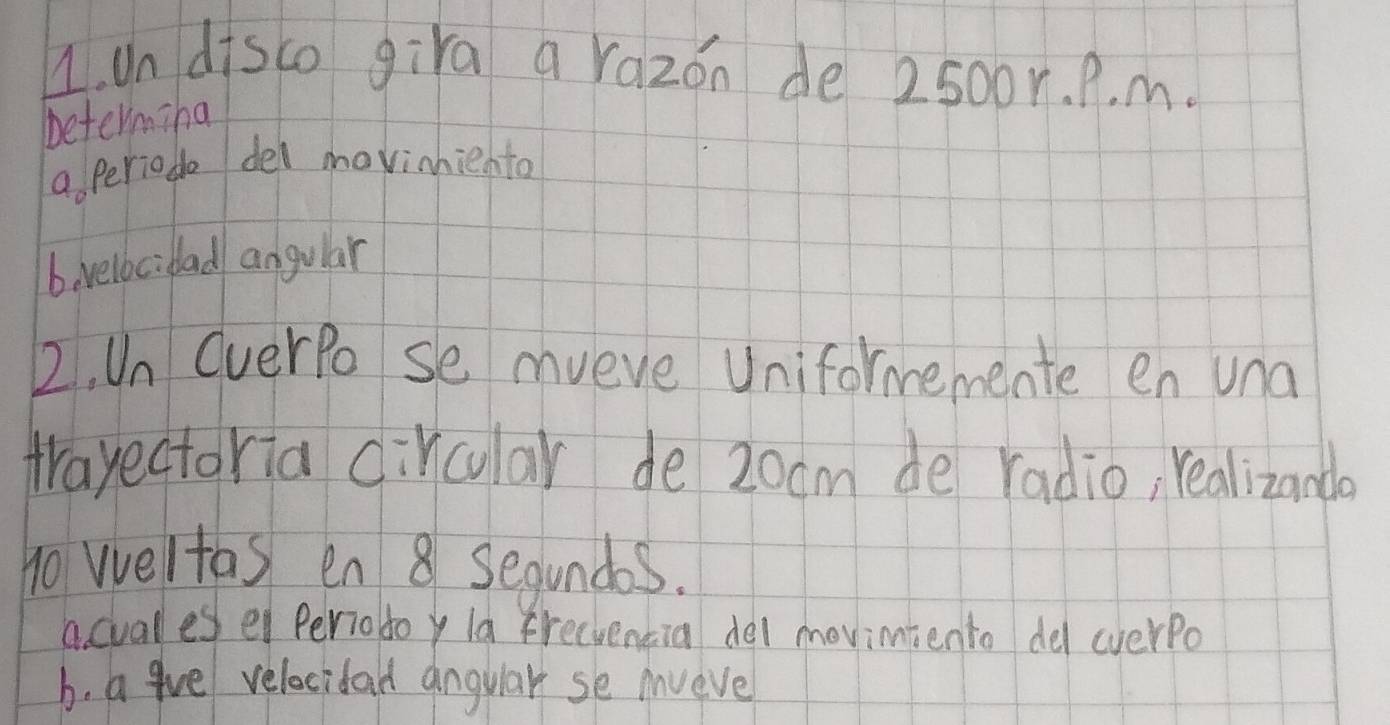 1. Un disco gira a razón de 2500 r.P.m.
Determina
a. Periodo del movimiento
b. velocidad angular
2. Un cuerPo se mueve Uniformemente en una
trayectoria circular de 20cm de radio, realizando
10 vueltas en 8 segundos.
a. cual es el Periodo y la frecuencia del movimiento del cuerPo
b. a que velocidad angular se mueve